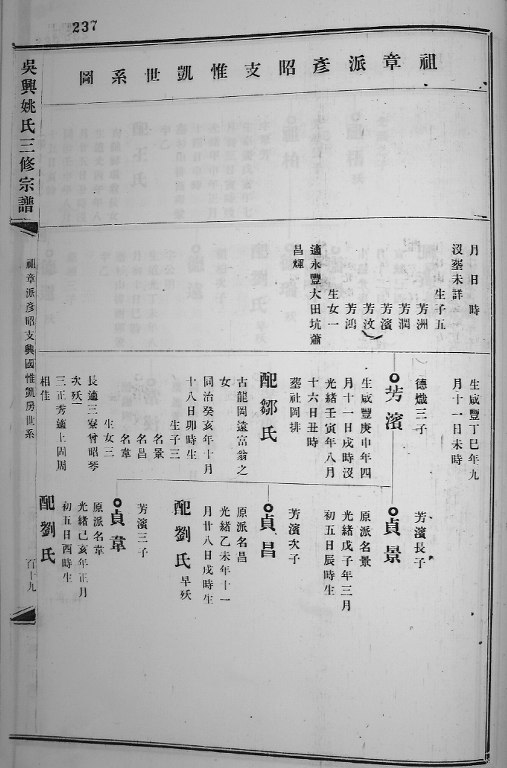 237
祖章派彥昭支惟凱世系圖
月 日 時
沒塟未詳
生子五
芳洲
芳潤
芳濱
芳汶
芳鴻
生女一
適永豐大田坑蕭
昌輝
生咸豐丁巳年九
月十一日未時
德熾三子
芳濱
生咸豐庚申年四
月十一日戌時沒
光緒壬寅年八月
十六日丑時
塟社岡排
配鄒氏
古龍岡遠富翁之
女
同治癸亥年十月
十八日卯時生
生子三
名景
名昌
名韋
生女三
長適三寮曾昭琴
次殀
三正秀適上固周
相佳
芳濱長子
貞景
原派名景
光緒戊子年三月
初五日辰時生
芳濱次子
貞昌
原派名昌
光緒乙未年十一
月廿八日戌時生
配劉氏 早殀
芳濱三子
貞韋
原派名韋
光緒己亥年正月
初五日酉時生
配劉氏
吳興姚氏三修宗譜
祖章派彥昭支興國惟凱房世系
百十九